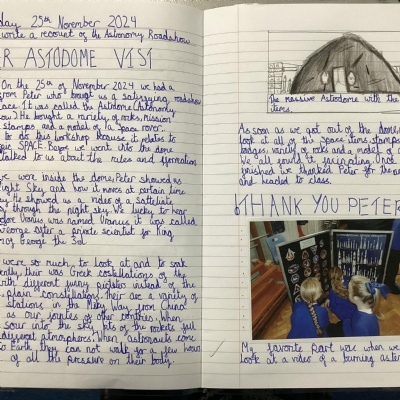 day 25th November 2024
write a recount of the Astonomy Roadshow
ER ASTODOME VISI
On the 25th of November 2024 we had a
from Peter who brought us a satisfying roadshow
ace. It was called the Astodome (Astonomy
ow.) He bought a variety of rocks, mission
stamps and a model of a space rover.
to do this workshop because it relates to
pic SPACE. Before we went into the dome
talked to us about the rules and information
we were inside the dome, Peter showed us
Night Sky and how it moves at certain time
y. He showed us a video of a satteliete
through the night sky. We lucky to hear
Venus was named Venus it was called
George after a private scientist for King
George the
were so much, to look at and to soak
their was Greek costellations of the
different funny pictures instead of the
plain constellations. Their are a variety of
stations in the Milky Way from China
as our joules of other contries. When
sour into the sky bits of the rockets fall
different atmospheres. When astronauts come
to Earth they can not walk for a few hours
of all the pressure on their body.
The massive Astrodome with the
items.
As soon as we got out of the dome,
look at all of the space items stamps
badges, variety of rocks and a model of
We all found it facinating. Once
finished we thanked Peter for the
and headed to class.
THANK YOU PETER
My favorite part was when we
look at a video of a burning aster